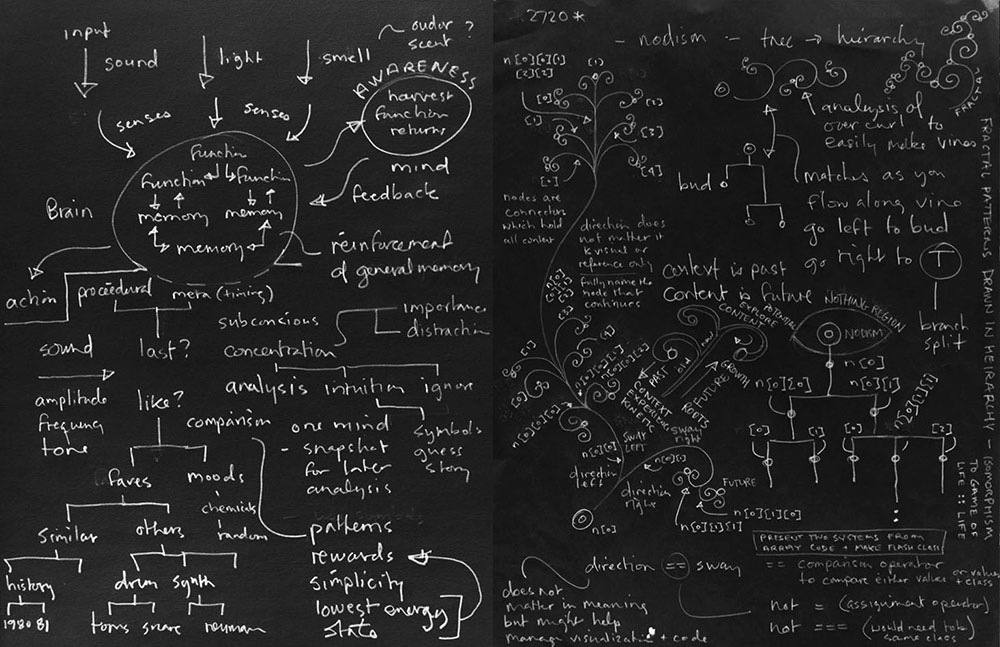 input
sound
light
smell
~ oudor ?
scent
AWARENESS
harvest
function
returns
senses
senses
mind
feedback
Function
Function
Function
memory
memory
memory
Brain
reinforcement
of general memory
action
proceedural
meta (timing)
subconscious
importance
distraction
sound
last?
concentration
amplitude
frequency
tone
like?
analysis
intuition
ignore
comparison
one mind
- snapshot
for later
analysis
symbols
guess
story
faves
moods
chemicals
random
similar
others
patterns
rewards
simplicity
lowest energy
state
history
drum
synth
1980 81
toms
snare
2720 *
- nodism - tree → hierarchy
FRACTAL
n[0][0][1]
[2][2]
(1)
[0]
[1]
[2]
[3]
[0]
[4]
nodes are
connectors
which hold
all content
direction does
not matter it
is visual
reference only
fully name the
node that
continues
analysis of
over curl to
easily make vines
bud
matches as you
flow along vine
go left to bud
go right to T
branch
split
FRACTAL PATTERNS DRAWN IN HEIRARCHY - ISOMORPHISM
TO GAME OF
LIFE :: LIFE
context is past
content is future
POTENTIAL
EXPLORE
CONTENT
NOTHING REGION
NODISM
PAST
OLD
NEW
GROWTH
FUTURE
ROOTS
CONTEXT
EXPERIENCE
KINETIC
SWAY
LEFT
sway
right
direction
left
direction
right
n[0]
n[0][1]
FUTURE
n[0][1][0]
n[0][1][1]
n[0]
n[0][0]
n[0][1]
n[0][1][1]
[0]
[1]
[0]
[2]
PRESENT TWO SYSTEMS FROM
ARRAY CODE + MAKE FLASH CLASS
direction == sway
== comparison operator
to compare either value
or values
+ class
does not
matter in meaning
but might help
manage visualization + code
not = (assignment operator)
not === (would need to be
same class)